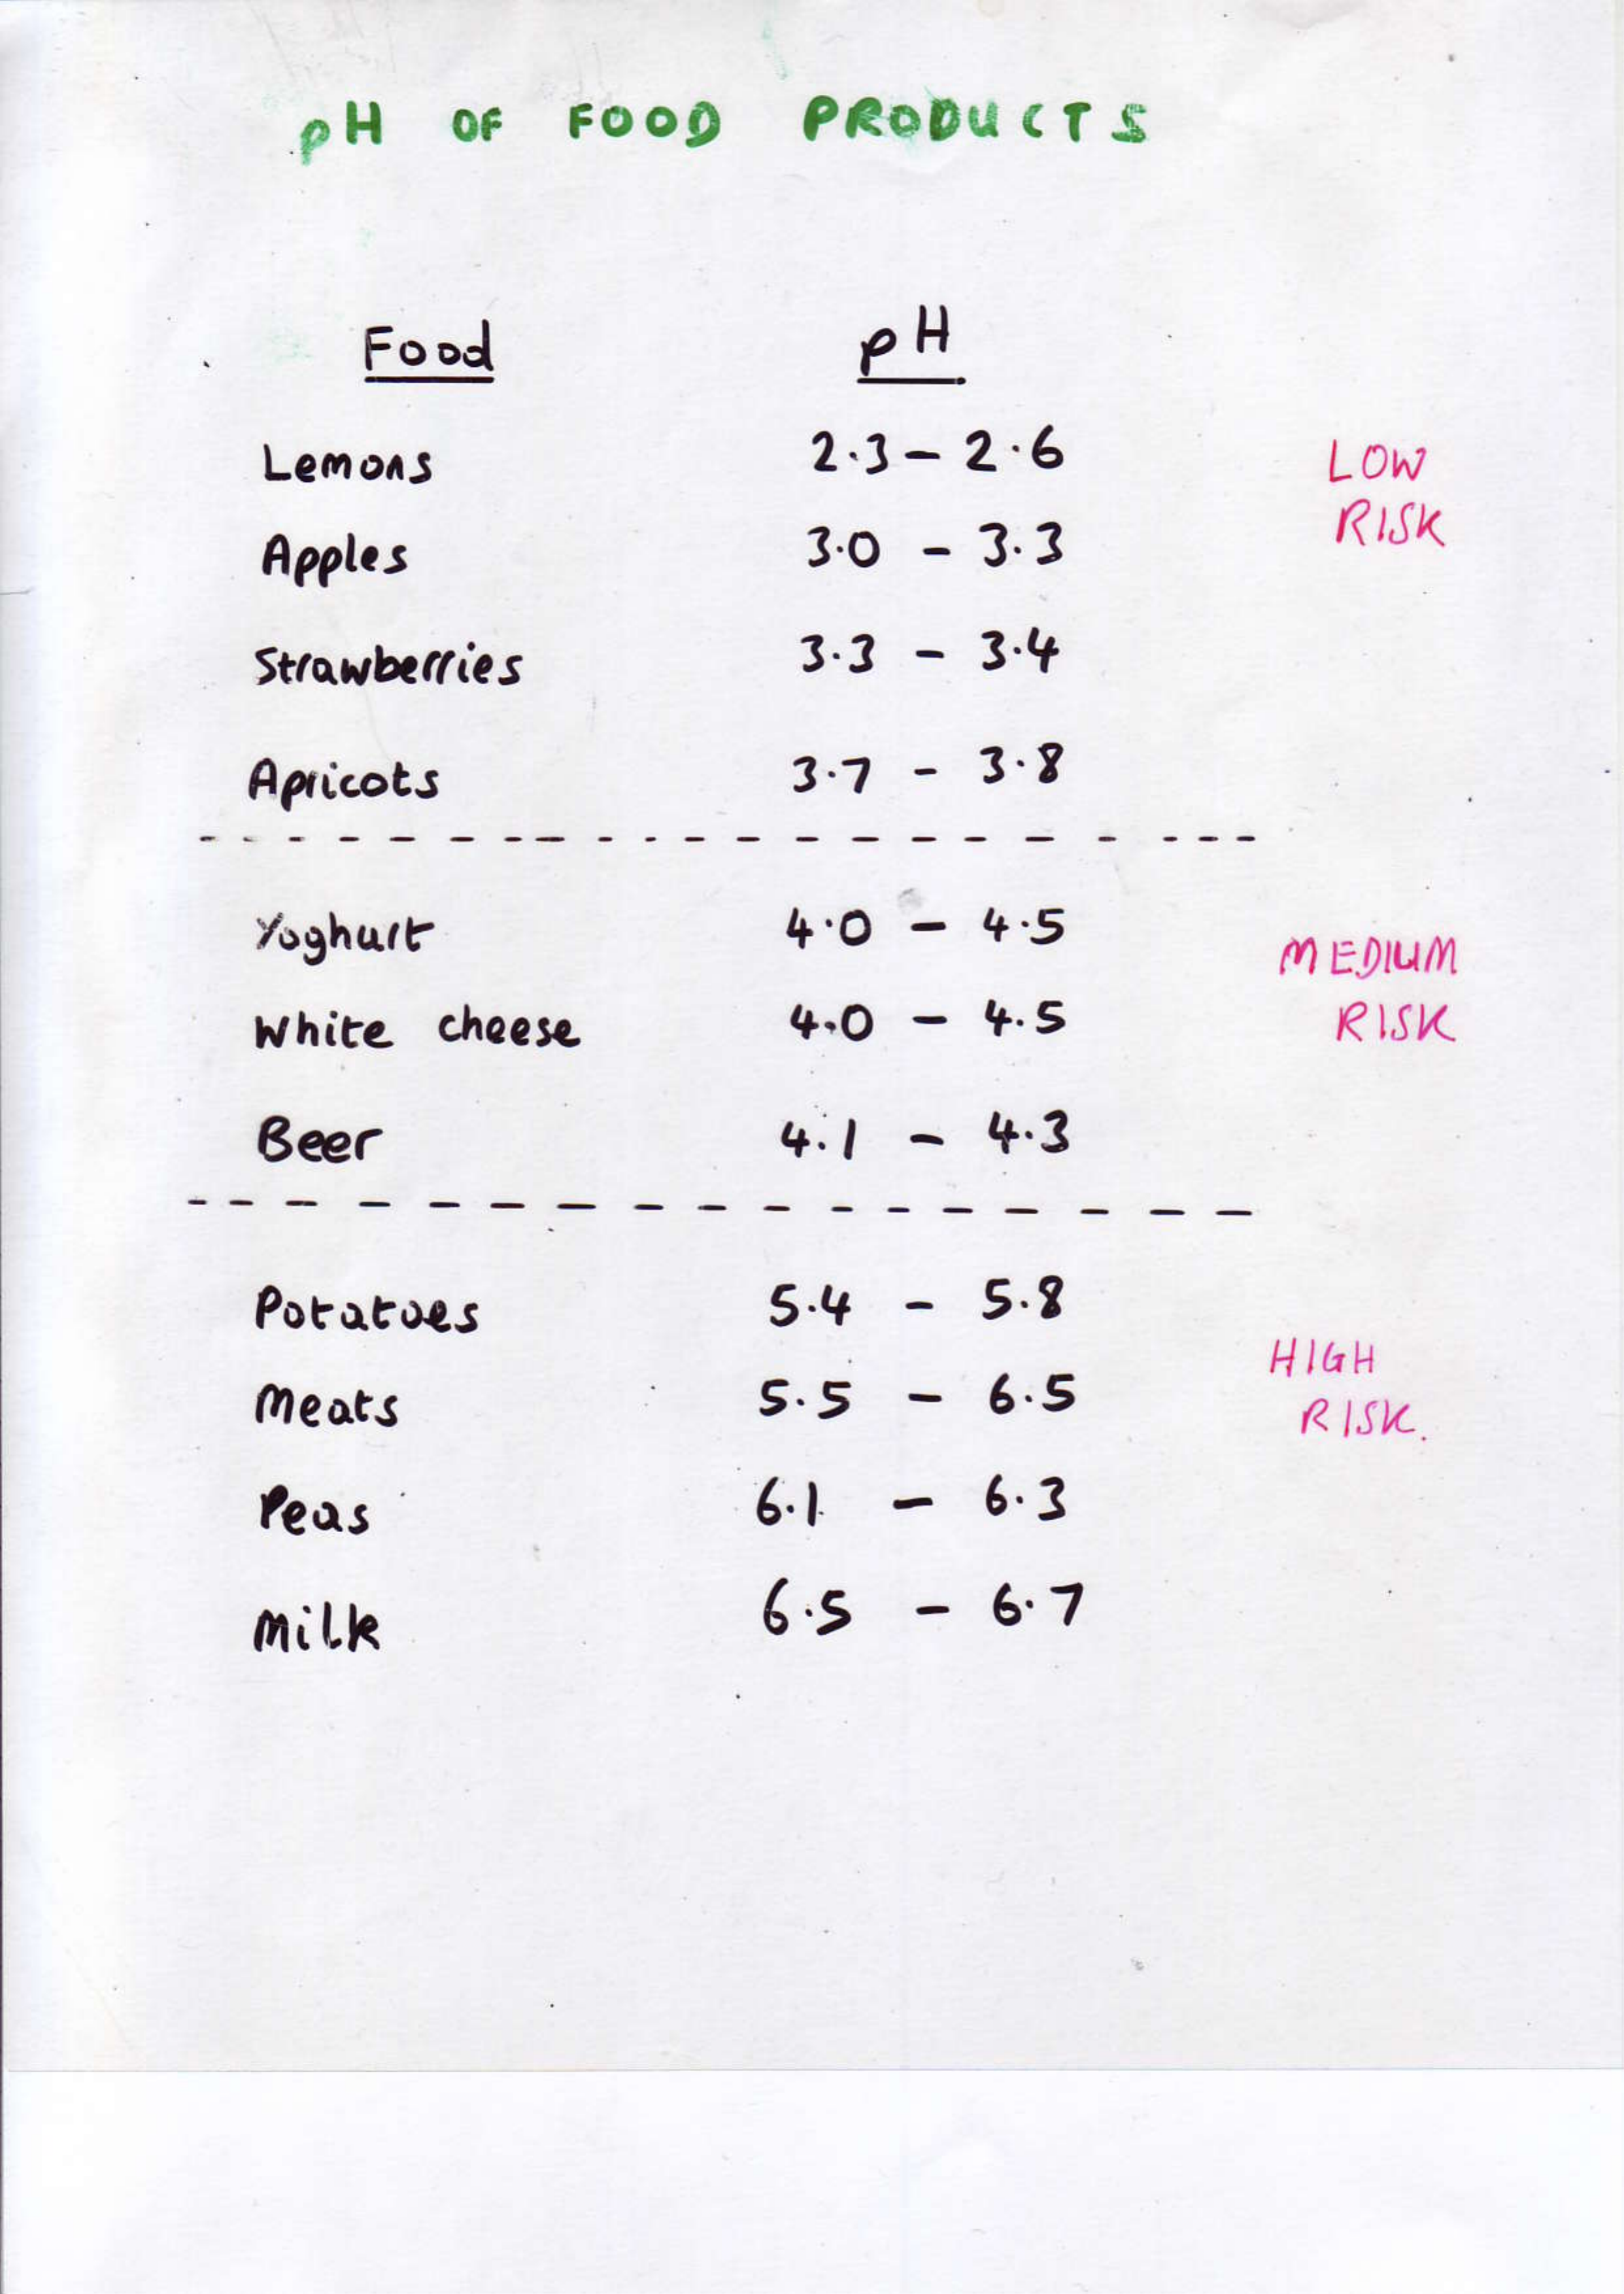 pH OF FOOD PRODUCTS
Food pH
Lemons 2.3 - 2.6 LOW
RISK
Apples 3.0 - 3.3
Strawberries 3.3 - 3.4
Apricots 3.7 - 3.8
Yoghurt 4.0 - 4.5 MEDIUM
White cheese 4.0 - 4.5 RISK
Beer 4.1 - 4.3
Potatoes 5.4 - 5.8
HIGH
Meats 5.5 - 6.5 RISK.
Peas 6.1 - 6.3
Milk 6.5 - 6.7